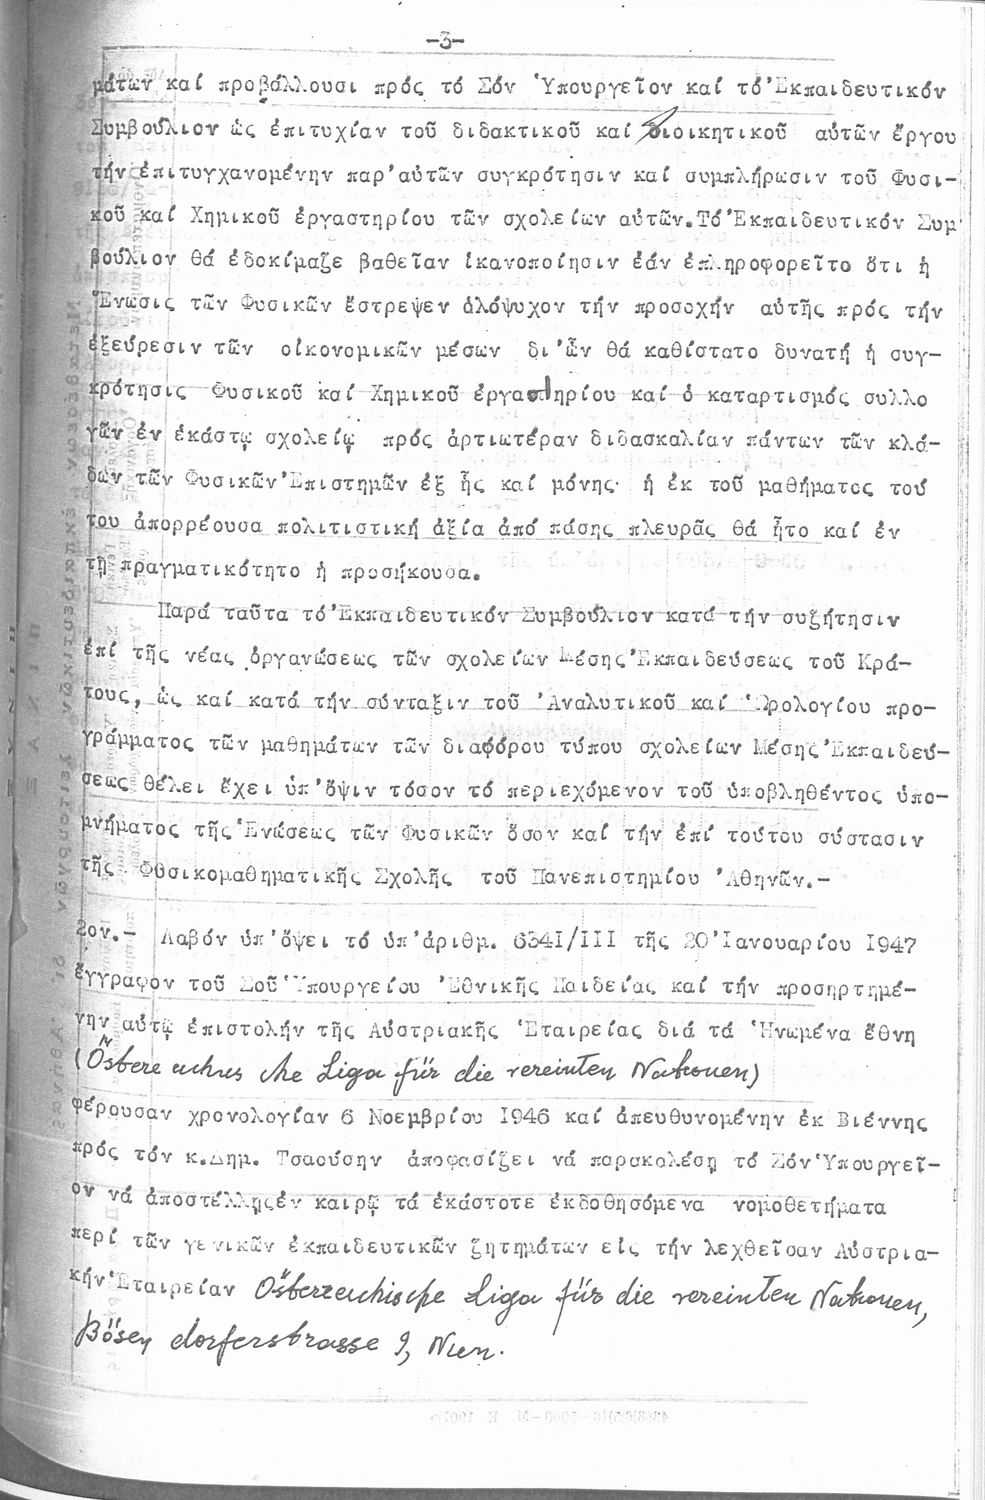 -3-
μάτων καί προβάλλουσι πρός τό Σόν Ὑπουργεῖον καί τό Ἐκπαιδευτικόν
Συμβούλιον ὡς ἐπιτυχίαν τοῦ διδακτικοῦ καί διοικητικοῦ αὐτῶν ἔργου
τήν ἐπιτυγχανομένην παρ' αὐτῶν συγκρότησιν καί συμπλήρωσιν τοῦ Φυσι-
κοῦ καί Χημικοῦ ἐργαστηρίου τῶν σχολείων αὐτῶν. Τό Ἐκπαιδευτικόν Συμ
βούλιον θά ἐδοκίμαζε βαθεῖαν ἱκανοποίησιν ἐάν ἐπληροφορεῖτο ὅτι ἡ
Ἕνωσις τῶν Φυσικῶν ἔστρεψεν ὁλόψυχον τήν προσοχήν αὐτῆς πρός τήν
ἐξεύρεσιν τῶν οἰκονομικῶν μέσων δι' ὧν θά καθίστατο δυνατή ἡ συγ-
κρότησις Φυσικοῦ καί Χημικοῦ ἐργαστηρίου καί ὁ καταρτισμός συλλο
γῶν ἐν ἑκάστῳ σχολείῳ πρός ἀρτιωτέραν διδασκαλίαν πάντων τῶν κλά-
δων τῶν Φυσικῶν Ἐπιστημῶν ἐξ ἧς καί μόνης ἡ ἐκ τοῦ μαθήματος τού
του ἀπορρέουσα πολιτιστική ἀξία ἀπό πάσης πλευρᾶς θά ἦτο καί ἐν
τῇ πραγματικότητο ἡ προσήκουσα.
Παρά ταῦτα τό Ἐκπαιδευτικόν Συμβούλιον κατά τήν συζήτησιν
ἐπί τῆς νέας ὀργανώσεως τῶν σχολείων Μέσης Ἐκπαιδεύσεως τοῦ Κρά-
τους, ὡς καί κατά τήν σύνταξιν τοῦ Ἀναλυτικοῦ καί Ὡρολογίου προ-
γράμματος τῶν μαθημάτων τῶν διαφόρου τύπου σχολείων Μέσης Ἐκπαιδεύ-
σεως θέλει ἔχει ὑπ' ὄψιν τόσον τό περιεχόμενον τοῦ ὑποβληθέντος ὑπο-
μνήματος τῆς Ἑνώσεως τῶν Φυσικῶν ὅσον καί τήν ἐπί τούτου σύστασιν
τῆς Φυσικομαθηματικῆς Σχολῆς τοῦ Πανεπιστημίου Ἀθηνῶν.-
2ον.- Λαβόν ὑπ' ὄψει τό ὑπ' ἀριθμ. 6341/III τῆς 20 Ἰανουαρίου 1947
ἔγγραφον τοῦ Σοῦ Ὑπουργείου Ἐθνικῆς Παιδείας καί τήν προσηρτημέ-
νην αὐτῷ ἐπιστολήν τῆς Αὐστριακῆς Ἑταιρείας διά τά Ἡνωμένα ἔθνη
(Östere uchus che Liga für die vereinten Nationen)
φέρουσαν χρονολογίαν 6 Νοεμβρίου 1946 καί ἀπευθυνομένην ἐκ Βιέννης
πρός τόν κ. Δημ. Τσαούσην ἀποφασίζει νά παρακαλέσῃ τό Σόν Ὑπουργεῖ-
ον νά ἀποστέλλῃ ἐν καιρῷ τά ἑκάστοτε ἐκδοθησόμενα νομοθετήματα
περί τῶν γενικῶν ἐκπαιδευτικῶν ζητημάτων εἰς τήν λεχθεῖσαν Αὐστρια-
κήν Ἑταιρείαν Österreichische Liga für die vereinten Nationen,
Bösendorferstrasse 9, Wien.